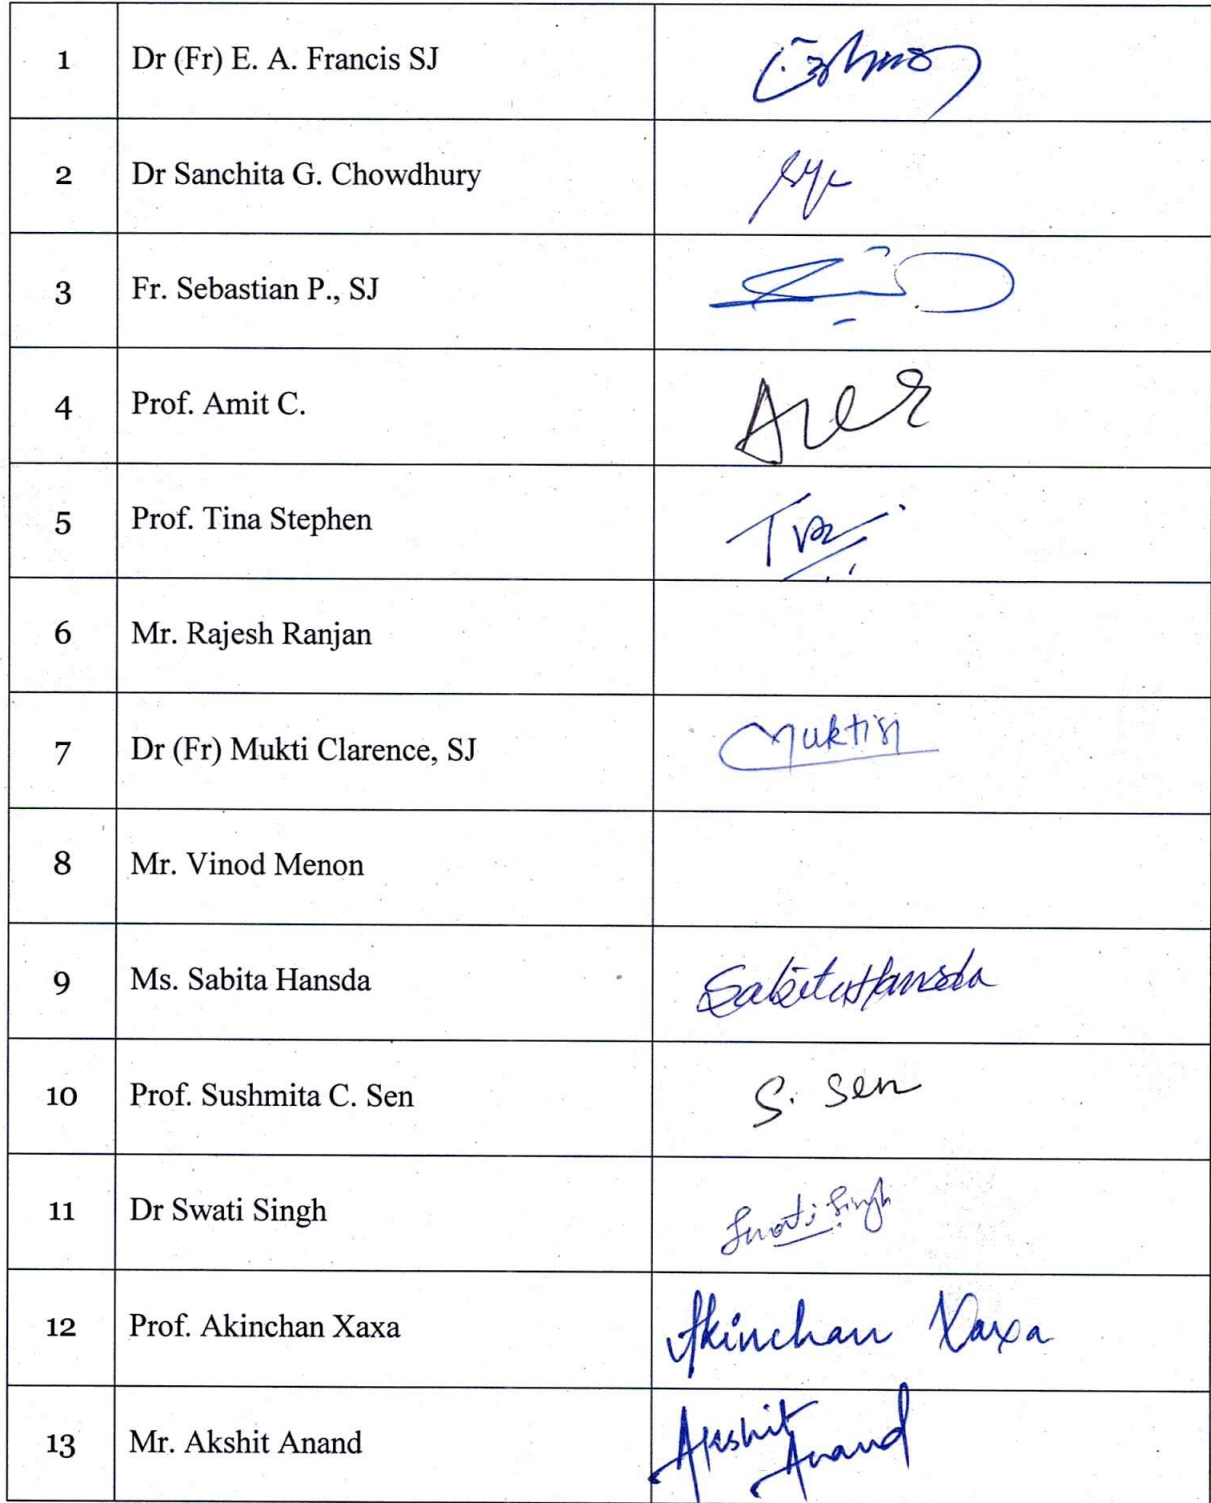 1 Dr (Fr) E. A. Francis SJ
2 Dr Sanchita G. Chowdhury
3 Fr. Sebastian P., SJ
4 Prof. Amit C.
5 Prof. Tina Stephen
6 Mr. Rajesh Ranjan
7 Dr (Fr) Mukti Clarence, SJ
8 Mr. Vinod Menon
9 Ms. Sabita Hansda Sabita Hansda
10 Prof. Sushmita C. Sen S. Sen
11 Dr Swati Singh Swati Singh
12 Prof. Akinchan Xaxa Akinchan Xaxa
13 Mr. Akshit Anand Akshit Anand